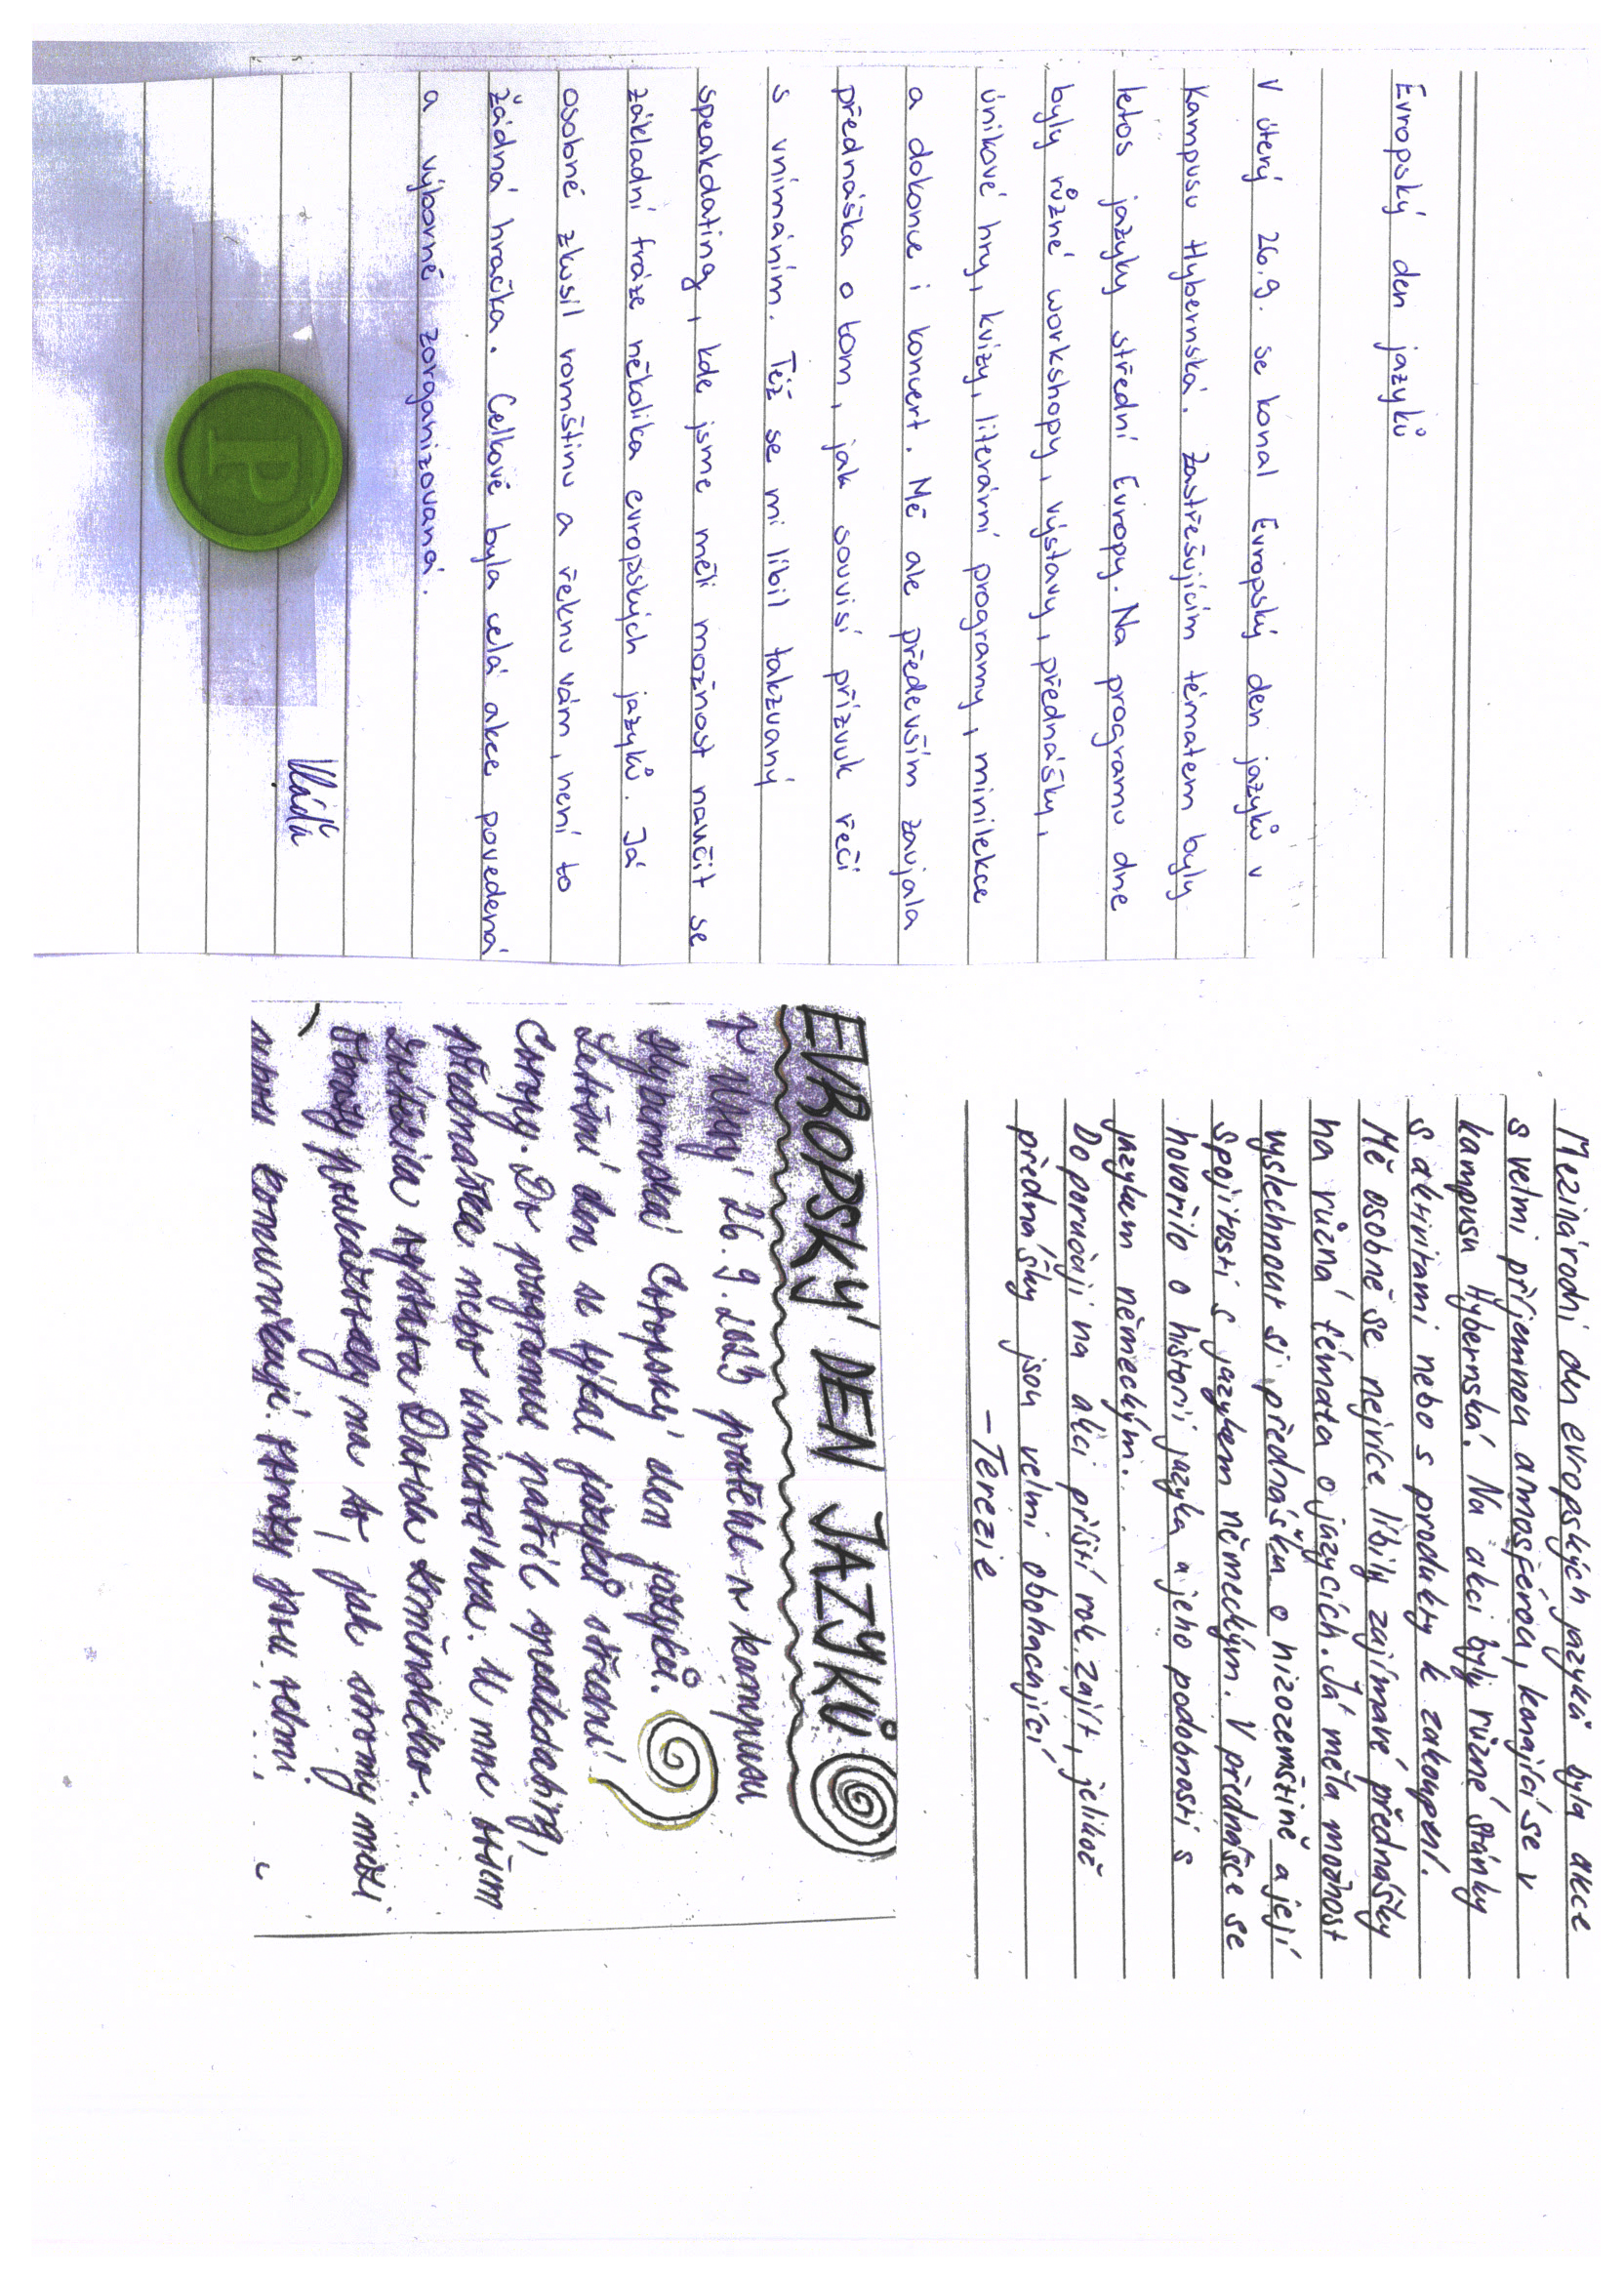 Evropský den jazyků
V úterý 26.9. se konal Evropský den jazyků v
Kampusu Hybernská. Zastřešujícím tématem byly
letos jazyky střední Evropy. Na programu dne
byly různé workshopy, výstavy, přednášky,
únikové hry, kvízy, literární programy, minilekce
a dokonce i koncert. Mě ale především zaujala
přednáška o tom, jak souvisí přízvuk řeči
s vnímáním. Též se mi líbil takzvaný
speakdating, kde jsme měli možnost naučit se
základní fráze několika evropských jazyků. Já
osobně zkusil romštinu a řeknu vám, není to
žádná hračka. Celkově byla celá akce povedená
a výborně zorganizovaná.
P
Mezinárodní den evropských jazyků byla akce
s velmi příjemnou atmosférou, konající se v
kampusu Hybernská. Na akci byly různé stánky
s aktivitami nebo s produkty k zakoupení.
Mě osobně se nejvíce líbily zajímavé přednášky
na různá témata o jazycích. Já měla možnost
vyslechnout si přednášku o nizozemštině a její
spojitosti s jazykem německým. V přednášce se
hovořilo o historii jazyka a jeho podobnosti s
jazykem německým.
Doporučuji na akci příští rok zajít, jelikož
přednášky jsou velmi obohacující
- Terezie
EVROPSKÝ DEN JAZYKŮ
V úterý 26.9.2023 proběhl v kampusu
Hybernská Evropský den jazyků.
Letošní den se týkal jazyků střední
Evropy. Do programu patřil speakdating,
přednáška nebo úniková hra. U mne vším
zvítězila výstava Davida
Obrazy poukazovaly na to, jak stromy mezi
sebou komunikují. jsou velmi